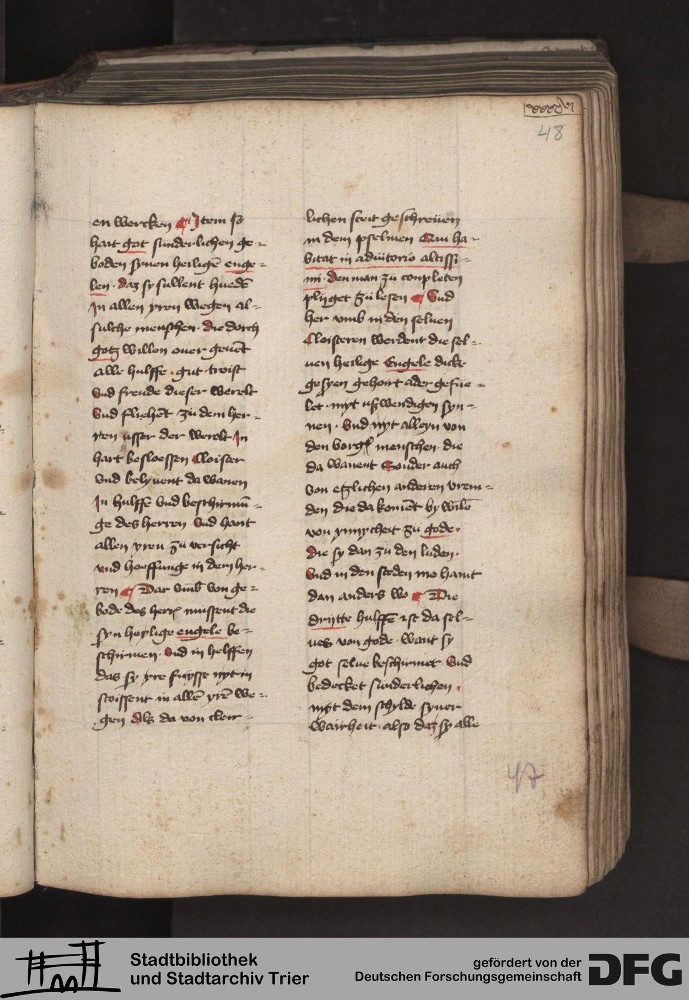 48
en wercken Item so
hait got sunderlichen ge-
boden synen heiligē enge-
len. daz sy sullent huedē
In allen yren wegen al-
sulche menschen. die dorch
gotz willen ouer geuēt
alle hulffe. gut. troist
Vnd freude dieser werelt
Vnd fluehēt zu dem her-
ren usser der werelt In
hart besloessen Cloister
vnd belyuent da wanen
In hulffe vnd beschirmū-
ge des herren Vnd hant
allen yren zu versicht
vnd hoeffunge in dem her-
ren Dar vmb von ge-
bode des herrē muissent die
syn heylige engele be-
schirmen. Vnd in helffen
das sy yre fuysse nyt in
stoissent in allē yrē we-
gen Als da von cleir-
lichen steit geschreuen
in dem pselmen Qui ha-
bitat in adiutorio altissi-
mi. den man zu conpleten
plyget zu lesen Vnd
her vmb in den seluen
Cloisteren werdent die sel-
uen heilige Engele dicke
gesyen gehoirt ader gefue-
let. myt ußwendigen syn-
nen. Vnd nyt alleyn von
den borgē menschen. die
da wanent Sonder auch
von etzlichen anderen vrem-
den die da komēt by wilē
von ynnycheit zu gode.
Die sy dan zu den luden.
Vnd in den steden me haint
dan anders wo Die
driitte hulffe ist da sel-
ues von gode. want sy
got selue beschirmet Vnd
bedecket sunderlichen.
myt dem schylde syner
Wairheit. also daz sy alle
47
Stadtbibliothek
und Stadtarchiv Trier
gefördert von der
Deutschen Forschungsgemeinschaft
DFG